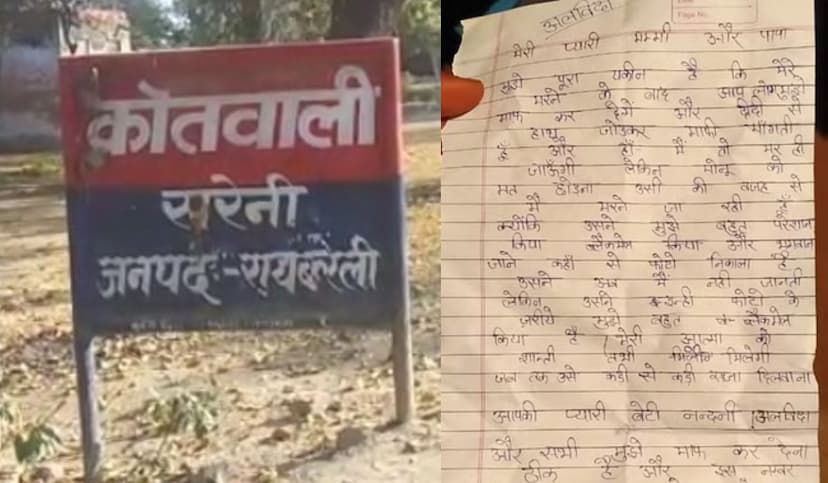 कोतवाली
सरेनी
जनपद:-रायबरेली
अलविदा
मेरी प्यारी मम्मी और पापा
मुझे पूरा यकीन है कि मेरे
मरने के बाद आप लोग मुझे
माफ कर देंगें और दीदी से
हाथ जोडकर माफी माँगती
हूँ और हाँ मैं तो मर ही
जाऊँगी लेकिन मोनू को
मत छोडना उसी की वजह से
मै मरने जा रही हूँ
क्योंकि उसने मुझे बहुत परेशान
किया ब्लैकमेल किया और भगवान
जाने कहाँ से फोटो निकाला है
उसने अब मैं नही जानती
लेकिन उसने इन्ही फोटो के
जरीये मुझे बहुत ब्लैकमेल
किया है मेरी आत्मा को
शान्ती तभी मिलेगी
जब तक उसे कडी से कडी सजा दिलवाना
आपकी प्यारी बेटी नन्दनी अलविदा
और सभी मुझे माफ कर देना
ठीक है और इस नम्बर